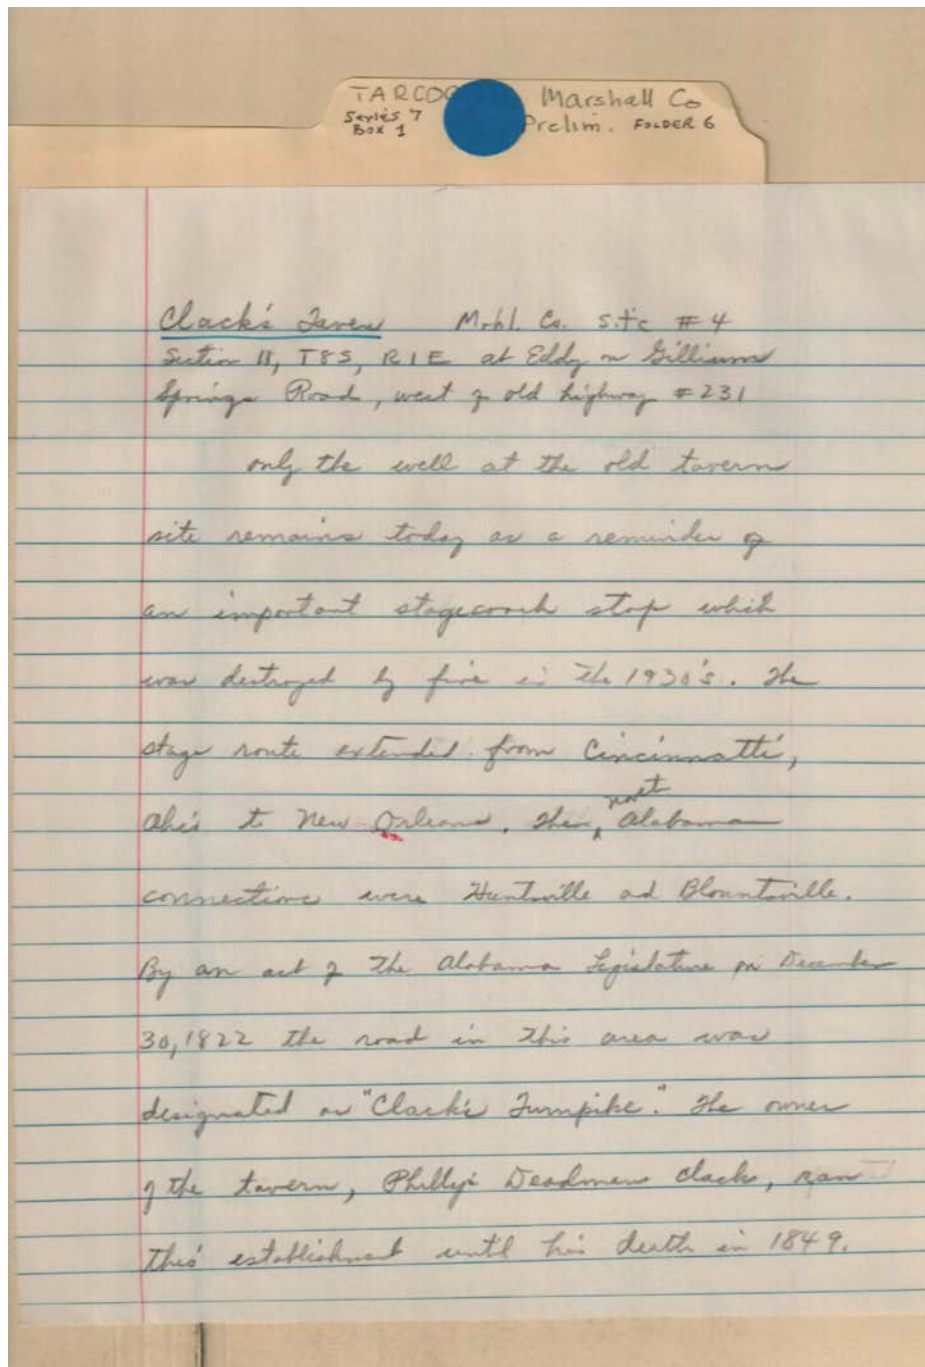 TARCOG Marshall Co
Series 7 Prelim. FOLDER 6
Box 1
Clack's Tavern Mrhl. Co. site #4
Section 11, T8S, R1E at Eddy on Gilliam
Springs Road, west of old highway #231
only the well at the old tavern
site remains today as a reminder of
an important stagecoach stop which
was destroyed by fire in the 1930's. The
stage route extended from Cincinnatti,
north
Ohio to New Orleans. The Alabama
connections were Huntsville and Blountsville.
By an act of the Alabama Legislature on December
30, 1822 the road in this area was
designated as "Clack's Turnpike." The owner
of the tavern, Clack, ran
this establishment until his death in 1849.